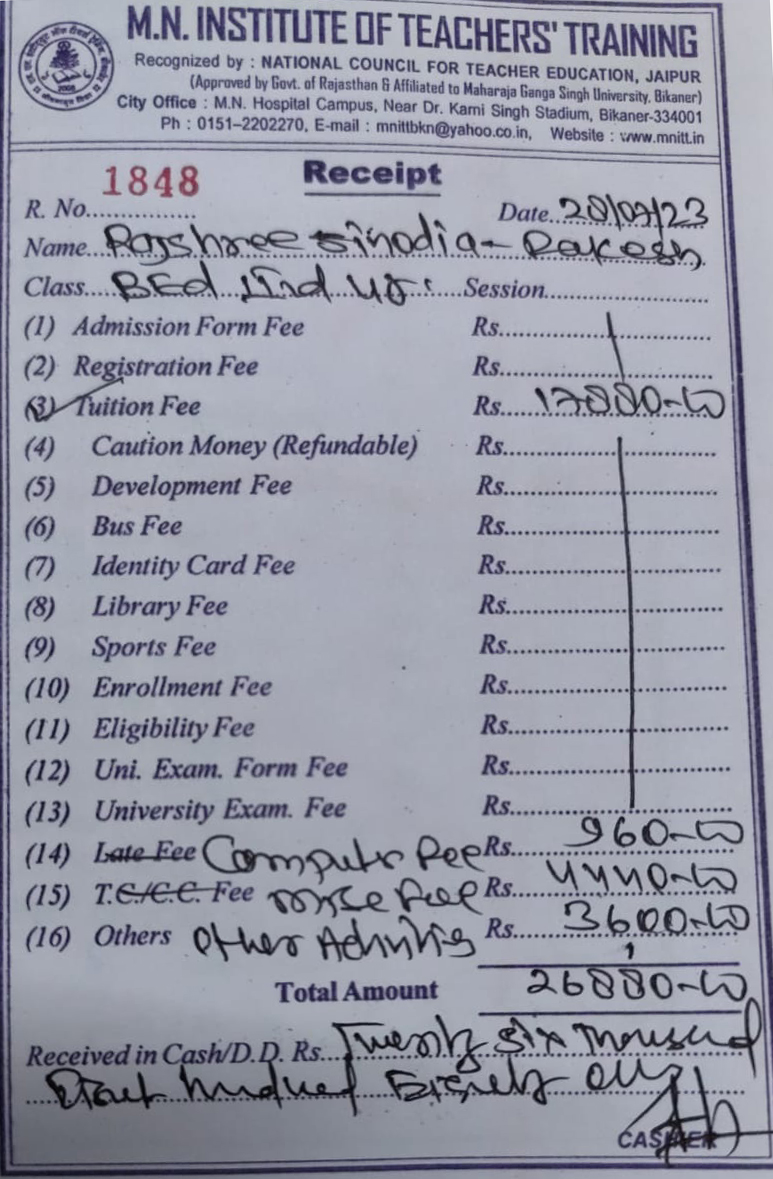 M.N. INSTITUTE OF TEACHERS' TRAINING
Recognized by : NATIONAL COUNCIL FOR TEACHER EDUCATION, JAIPUR
(Approved by Govt. of Rajasthan & Affiliated to Maharaja Ganga Singh University, Bikaner)
City Office : M.N. Hospital Campus, Near Dr. Karni Singh Stadium, Bikaner-334001
Ph : 0151–2202270, E-mail : mnittbkn@yahoo.co.in, Website : www.mnitt.in
Receipt
R. No. 1848 Date 28/07/23
Name Rajshree Sinodia - Rakesh
Class BEd IInd yr. Session
(1) Admission Form Fee Rs.
(2) Registration Fee Rs.
(3) Tuition Fee Rs. 17880-00
(4) Caution Money (Refundable) Rs.
(5) Development Fee Rs.
(6) Bus Fee Rs.
(7) Identity Card Fee Rs.
(8) Library Fee Rs.
(9) Sports Fee Rs.
(10) Enrollment Fee Rs.
(11) Eligibility Fee Rs.
(12) Uni. Exam. Form Fee Rs.
(13) University Exam. Fee Rs.
(14) Late Fee Computer Fee Rs. 960-00
(15) T.C./C.C. Fee Misc Fee Rs. 4440-00
(16) Others Other Activities Rs. 3600-00
Total Amount 26880-00
Received in Cash/D.D. Rs. Twenty Six Thousand
Eight hundred Eighty only
CASHIER